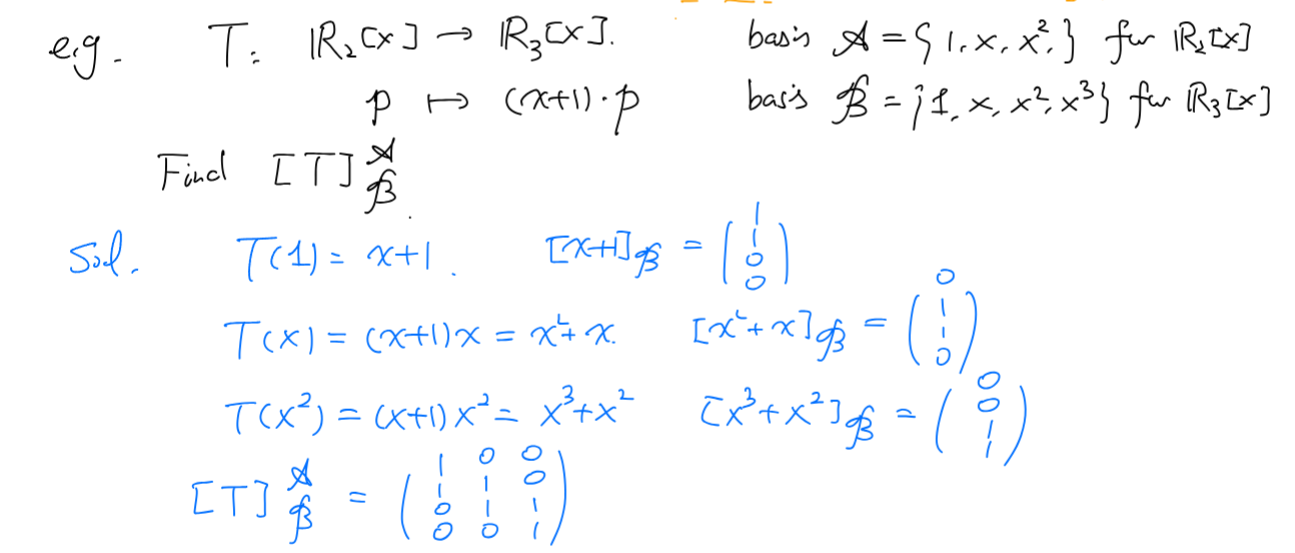 e.g. T: ℝ₂[x] → ℝ₃[x]. basis 𝒜 = {1, x, x²,} for ℝ₂[x]
p ↦ (x+1)·p basis ℬ = {1, x, x², x³} for ℝ₃[x]
Find [T]^𝒜_ℬ.
Sol. T(1) = x+1. [x+1]_ℬ = (1 1 0 0)
T(x) = (x+1)x = x²+x. [x²+x]_ℬ = (0 1 1 0)
T(x²) = (x+1)x² = x³+x² [x³+x²]_ℬ = (0 0 1 1)
[T]^𝒜_ℬ = (1 0 0
1 1 0
0 1 1
0 0 1)